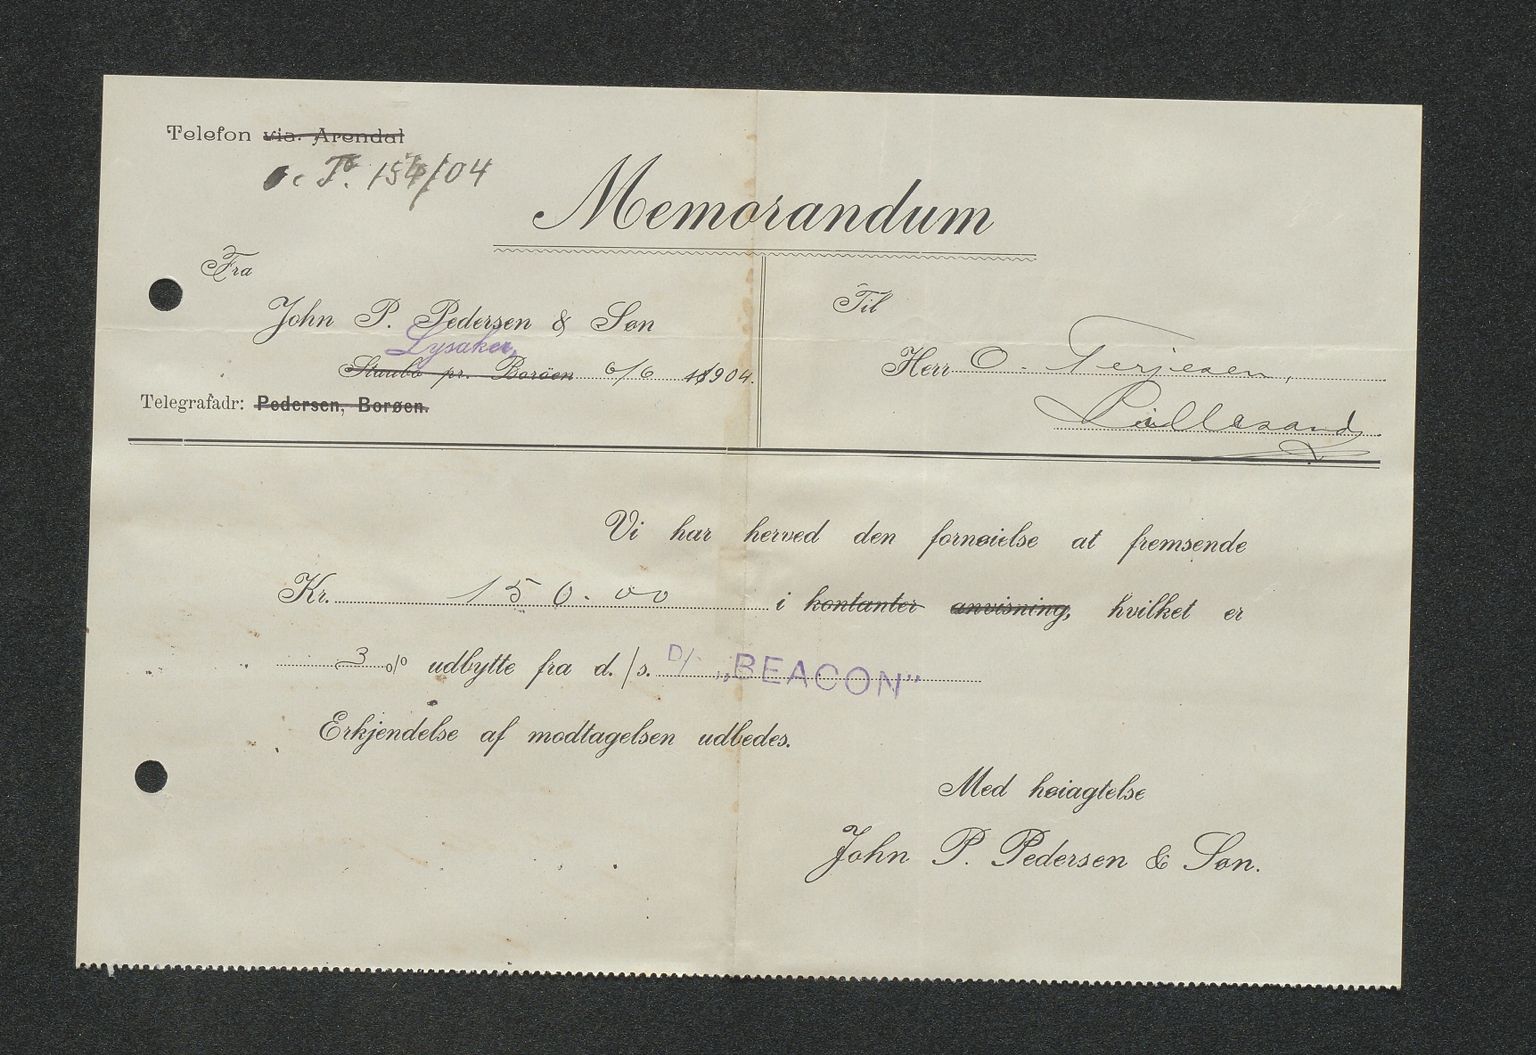 Telefon via. Arendal
O. T. 154/04
Memorandum
Fra
John P. Pedersen & Søn
Lysaker,
Staubø pr. Borøen 6/6 1904.
Telegrafadr: Pedersen, Borøen.
Til
Herr O. Terjesen,
Lillesand
Vi har herved den fornøielse at fremsende
Kr. 150.00 i kontanter anvisning, hvilket er
3 % udbytte fra d./s. D/S „BEACON”
Erkjendelse af modtagelsen udbedes.
Med høiagtelse
John P. Pedersen & Søn.